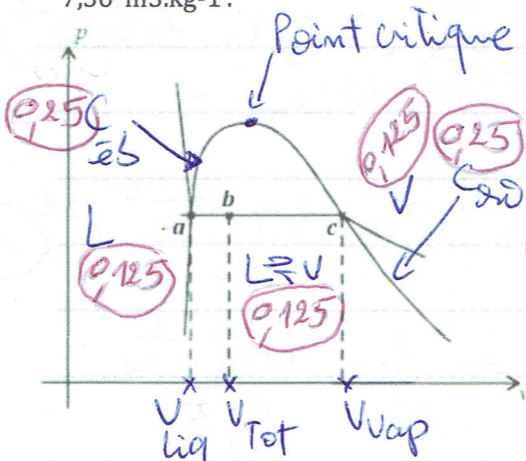 7,36 m3.kg-1 .
p
Point critique
0,25 C
éb
0,125
V
0,25
C
L
0,125
a b c
L⇌V
0,125
V liq
V Tot
V Vap